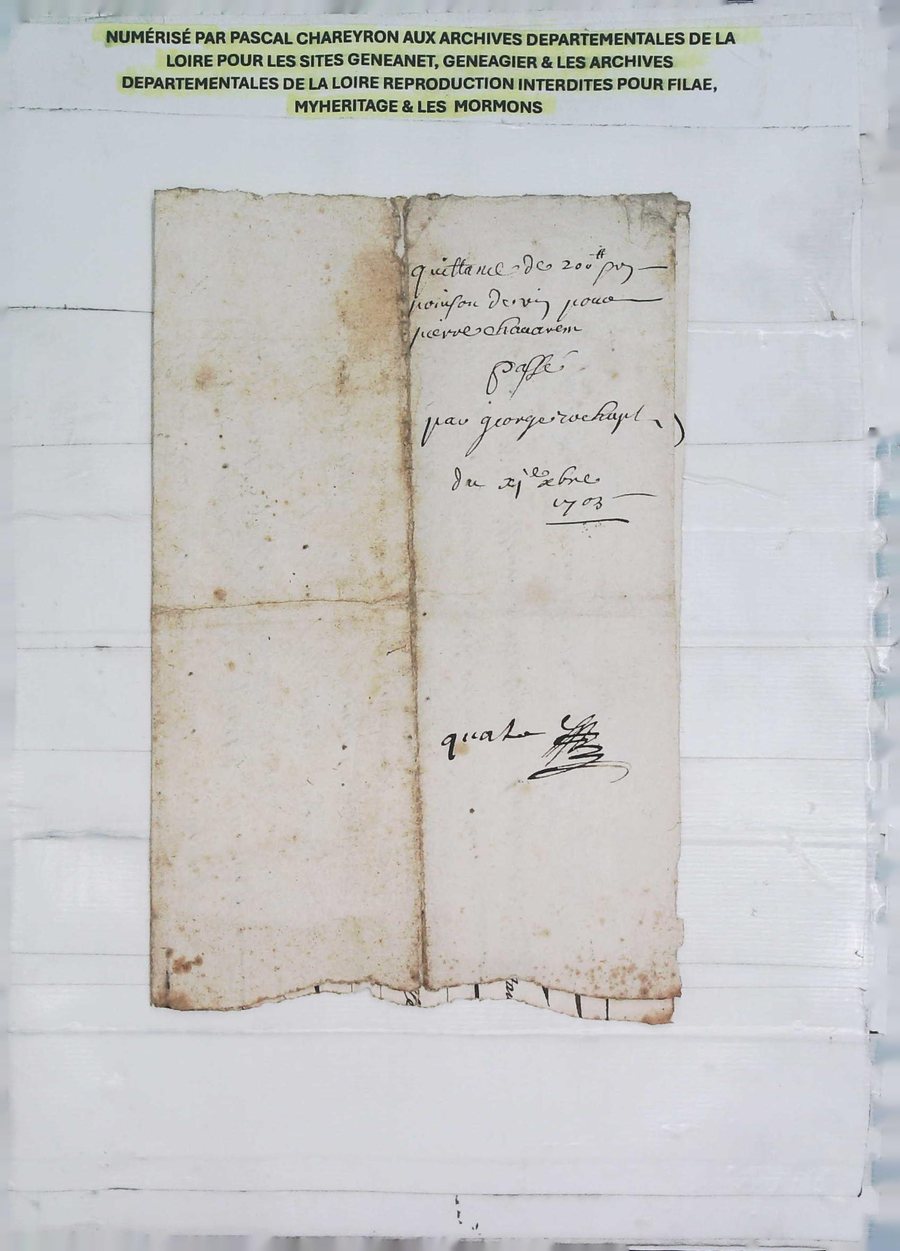 NUMÉRISÉ PAR PASCAL CHAREYRON AUX ARCHIVES DEPARTEMENTALES DE LA
LOIRE POUR LES SITES GENEANET, GENEAGIER & LES ARCHIVES
DEPARTEMENTALES DE LA LOIRE REPRODUCTION INTERDITES POUR FILAE,
MYHERITAGE & LES MORMONS
quittance de 200tt
poinson de vin pour
pierre
Passé
par george
du xje xbre
1703
quatre